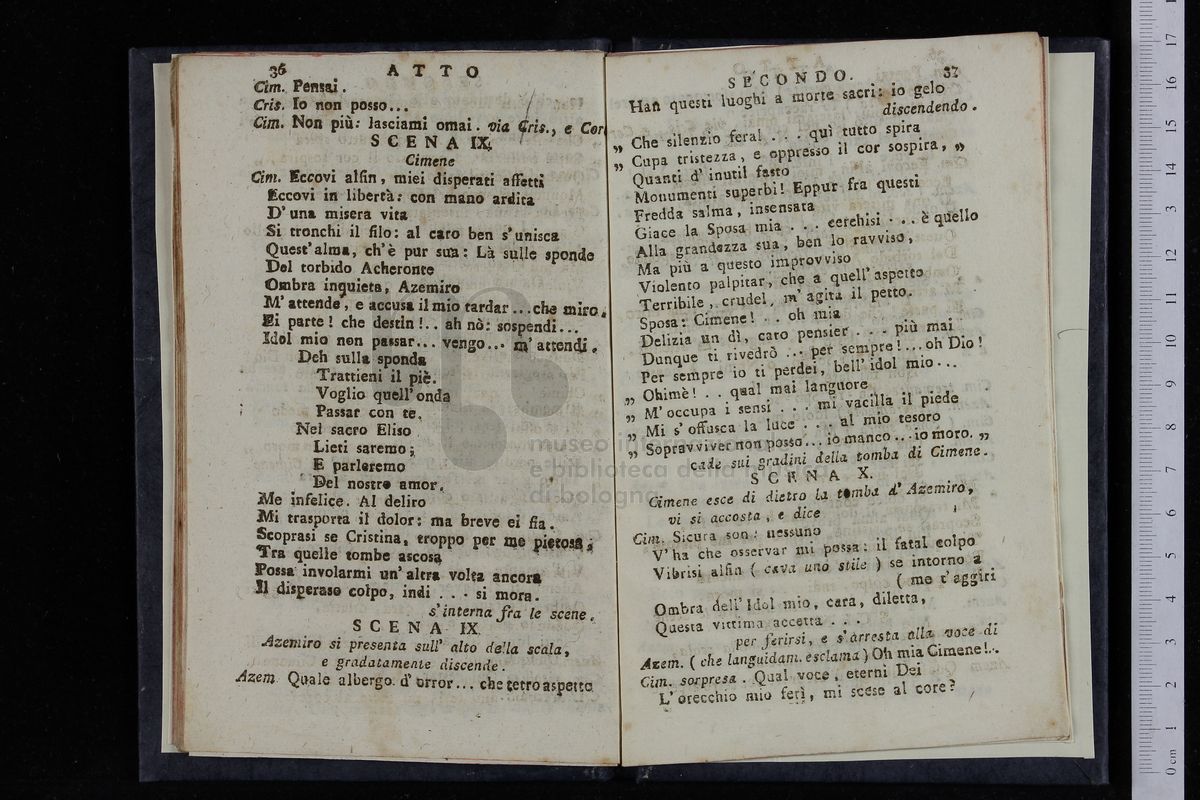 36 ATTO
Cim. Pensai.
Cris. Io non posso...
Cim. Non più: lasciami omai. via Cris., e Cor
SCENA IX.
Cimene
Cim. Eccovi alfin, miei disperati affetti
Eccovi in libertà: con mano ardita
D'una misera vita
Si tronchi il filo: al caro ben s'unisca
Quest'alma, ch'è pur sua: Là sulle sponde
Del torbido Acheronte
Ombra inquieta, Azemiro
M'attende, e accusa il mio tardar...che miro.
Ei parte! che destin!.. ah nò: sospendi...
Idol mio non passar... vengo... m'attendi.
Deh sulla sponda
Trattieni il piè.
Voglio quell'onda
Passar con te.
Nel sacro Eliso
Lieti saremo;
E parleremo
Del nostro amor.
Me infelice. Al deliro
Mi trasporta il dolor: ma breve ei fia.
Scoprasi se Cristina, troppo per me pietosa;
Tra quelle tombe ascosa
Possa involarmi un'altra volta ancora
Il disperaso colpo, indi . . . si mora.
s'interna fra le scene.
SCENA IX
Azemiro si presenta sull'alto della scala,
e gradatamente discende.
Azem. Quale albergo d'orror... che tetro aspetto
SECONDO. 37
Han questi luoghi a morte sacri: io gelo
discendendo.
„ Che silenzio feral . . . quì tutto spira
„ Cupa tristezza, e oppresso il cor sospira, „
Quanti d'inutil fasto
Monumenti superbi! Eppur fra questi
Fredda salma, insensata
Giace la Sposa mia . . . cerchisi . . . è quello
Alla grandezza sua, ben lo ravviso,
Ma più a questo improvviso
Violento palpitar, che a quell'aspetto
Terribile, crudel, m'agita il petto.
Sposa: Cimene! . . oh mia
Delizia un dì, caro pensier . . . più mai
Dunque ti rivedrò ... per sempre!...oh Dio!
Per sempre io ti perdei, bell'idol mio...
„ Ohimè! . . qual mai languore
„ M'occupa i sensi . . . mi vacilla il piede
„ Mi s'offusca la luce . . . al mio tesoro
„ Sopravviver non posso... io manco... io moro. „
cade sui gradini della tomba di Cimene.
SCENA X.
Cimene esce di dietro la tomba d'Azemiro,
vi si accosta, e dice
Cim. Sicura son: nessuno
V'ha che osservar mi possa: il fatal colpo
Vibrisi alfin ( cava uno stile ) se intorno a
( me t'aggiri
Ombra dell'Idol mio, cara, diletta,
Questa vittima accetta . . .
per ferirsi, e s'arresta alla voce di
Azem. ( che languidam. esclama ) Oh mia Cimene!..
Cim. sorpresa. Qual voce, eterni Dei
L'orecchio mio ferì, mi scese al core?
museo internazionale
e biblioteca della musica
di bologna